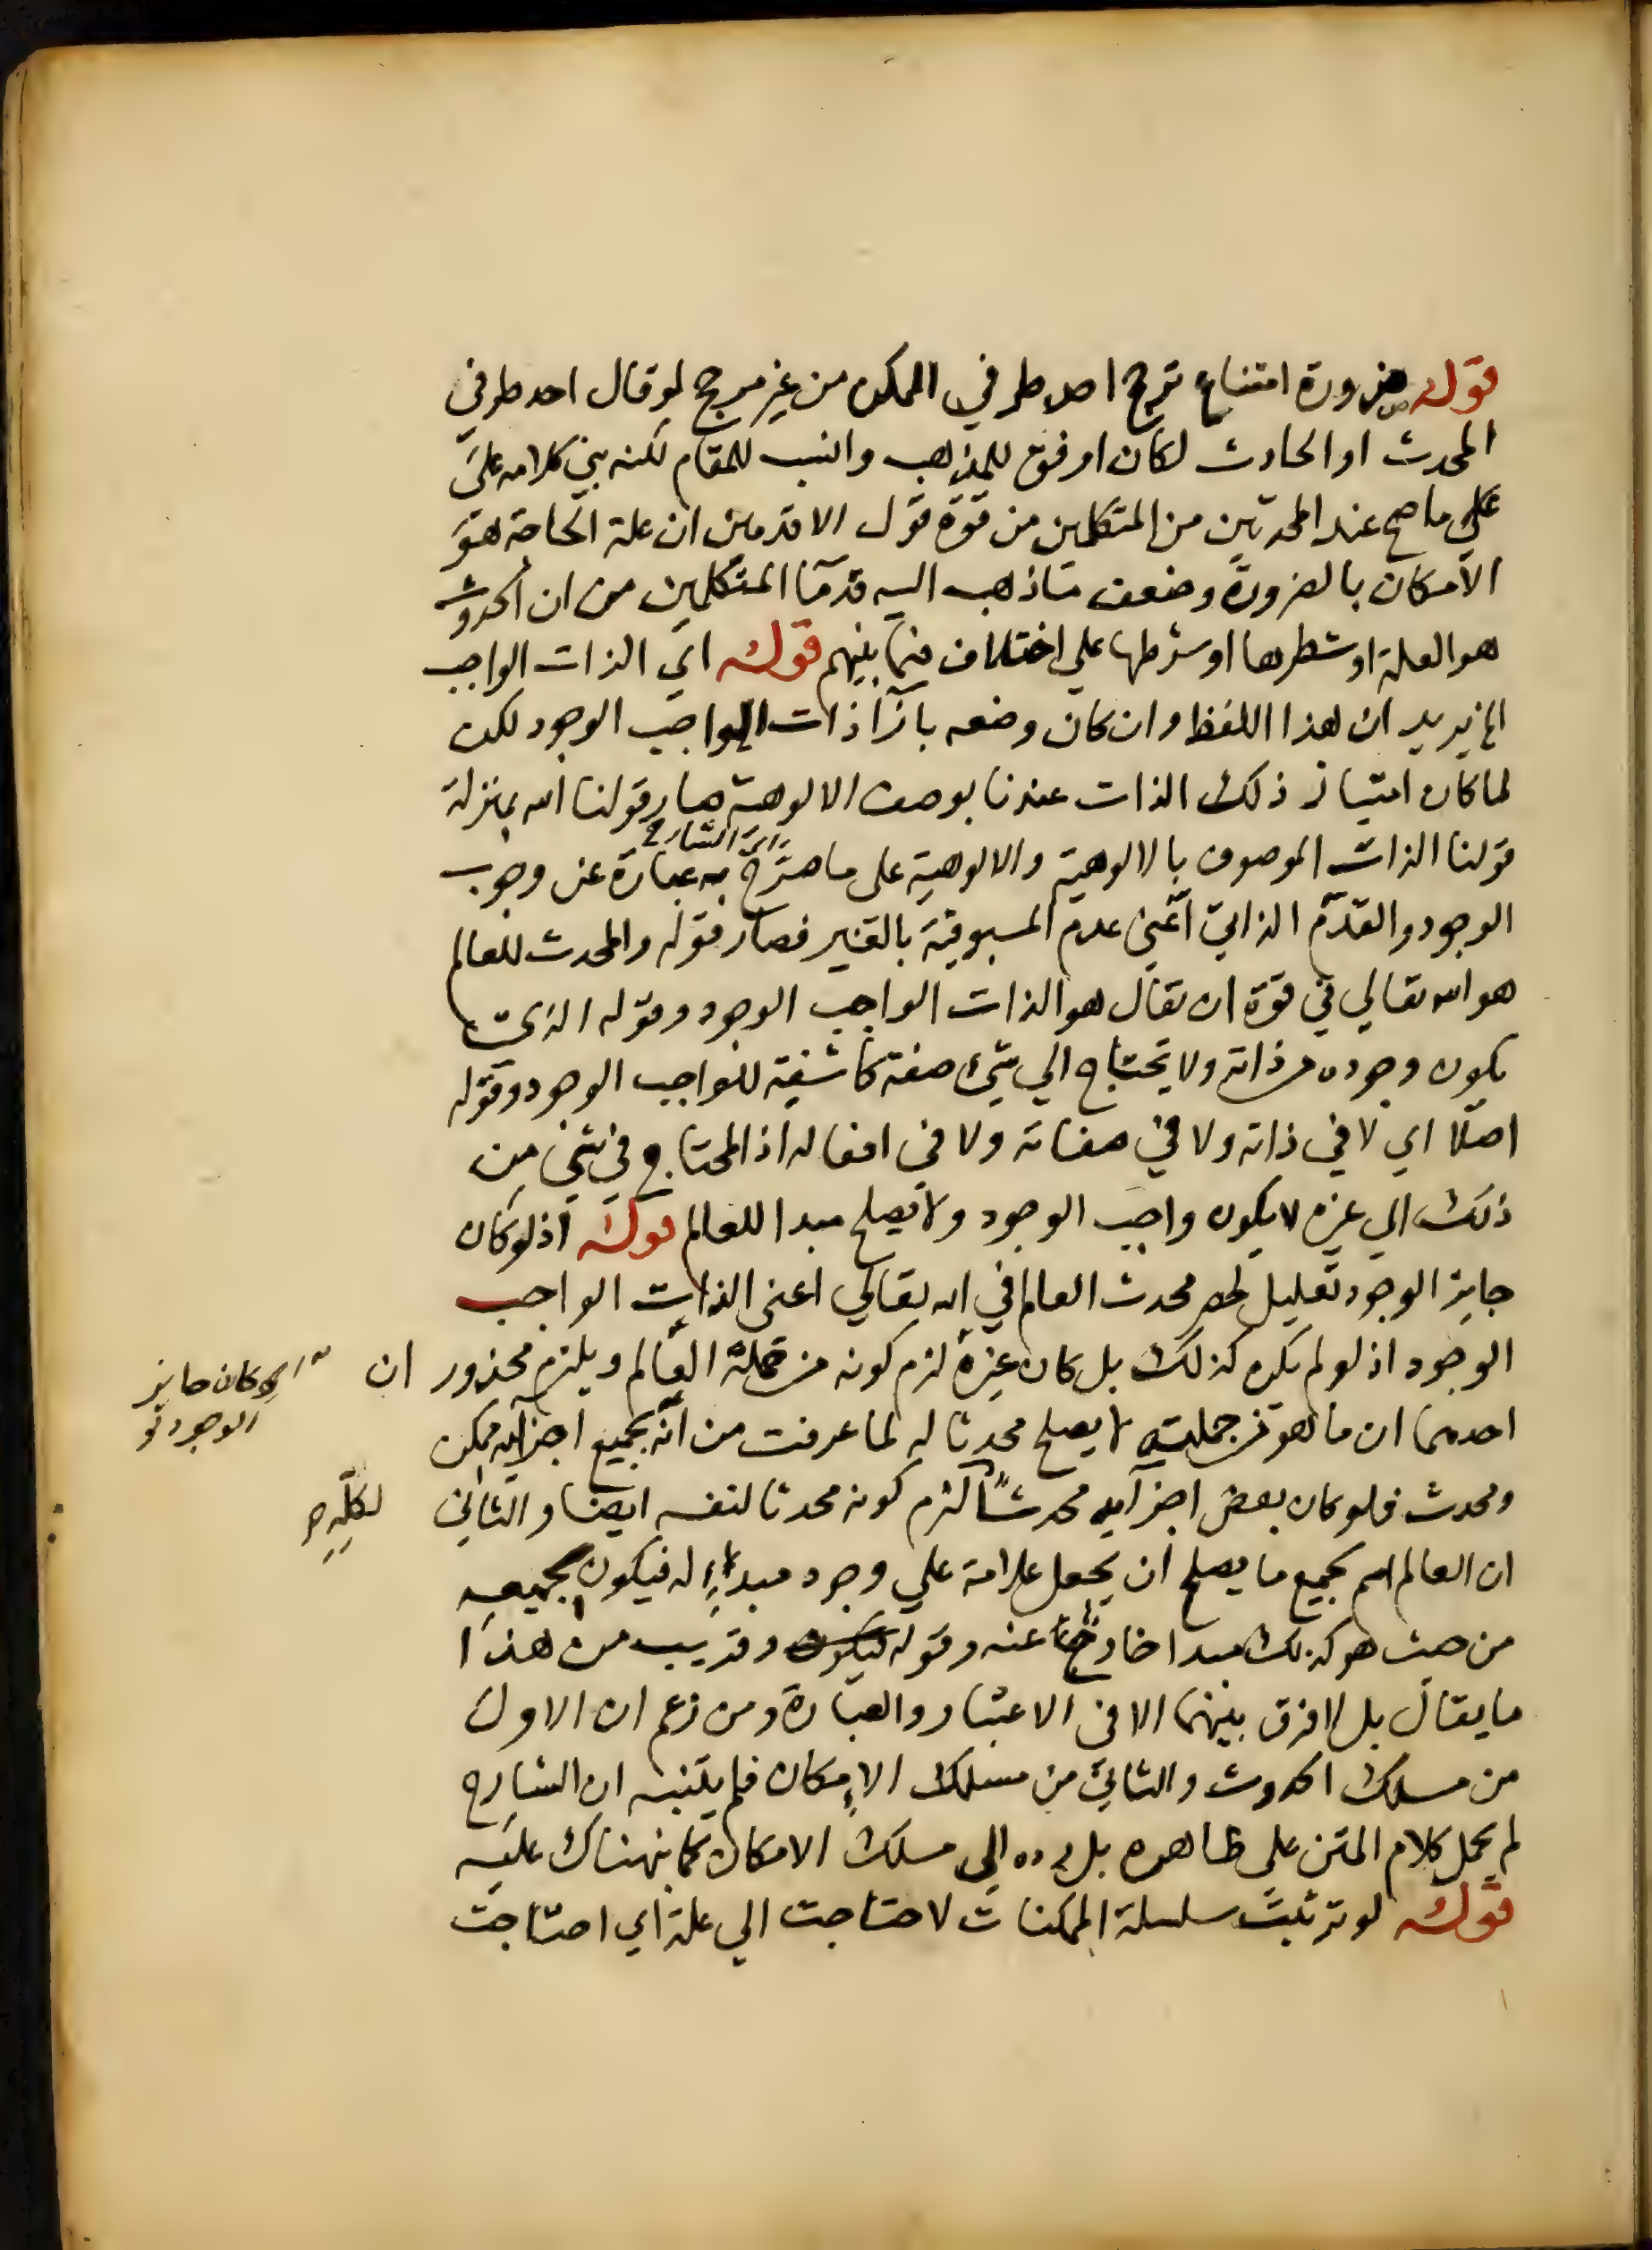 قوله ضرورة امتناع ترجح احد طرفي الممكن من غير مرجح لو قال احد طرفي
المحدث او الحادث لكان اوفق للمذهب وانسب للمقام لكنه بني كلامه علي
علي ما صح عند المحدثين من المتكلمين من قوة قول الاقدمين ان علة الحاجة هو
الامكان بالضرورة وضعف ما ذهب اليه قدمآ المتكلمين من ان الحدوث
هو العلة او شطرها او شرطها علي اختلاف فيما بينهم قوله اي الذات الواجب
الخ يريد ان هذا اللفظ وان كان وضعه بازآ ذات الواجب الوجود لكن
لما كان امتياز ذلك الذات عندنا بوصف الالوهية صار قولنا الله بمنزلة
قولنا الذات الموصوف بالالوهية والالوهية علي ما صرح به عبارة عن وجوب
اي الشارح
الوجود والقدم الذاتي اعني عدم المسبوقية بالغير فصار قوله والمحدث للعالم
هو الله تعالي في قوة ان يقال هو الذات الواجب الوجود وقوله الذي
يكون وجوده من ذاته ولا يحتاج الي شيء صفة كاشفة للواجب الوجود وقوله
اصلا اي لا في ذاته ولا في صفاته ولا في افعاله اذ المحتاج في شيء من
ذلك الي غيره لا يكون واجب الوجود ولا يصلح مبدا للعالم قوله اذ لو كان
جايز الوجود تعليل لحصر محدث العالم في الله تعالي اعني الذات الواجب
الوجود اذ لو لم يكن كذلك بل كان غيره لزم كونه من جملة العالم ويلزم محذور ان
اي كان جايز
الوجود
احدهما ان ما هو من جملته لا يصلح محدثا له لما عرفت من انه بجميع اجزآيه ممكن
ومحدث فلو كان بعض اجزآيه محدثاً لزم كونه محدثا لنفسه ايضا والثاني
لكله
ان العالم اسم لجميع ما يصلح ان يجعل علامة علي وجود مبدءٍ له فيكون لجميعه
من حيث هو كذلك مبدا خارجا عنه وقوله وقريب من هذا
ما يقال بل لا فرق بينهما الا في الاعتبار والعبارة ومن زعم ان الاول
من مسلك الحدوث والثاني من مسلك الامكان فلم يتنبه ان الشارح
لم يحمل كلام المتن علي ظاهره بل رده الي مسلك الامكان كما نبهناك عليه
قوله لو ترتبت سلسلة الممكنات لاحتاجت الي علة اي احتاجت